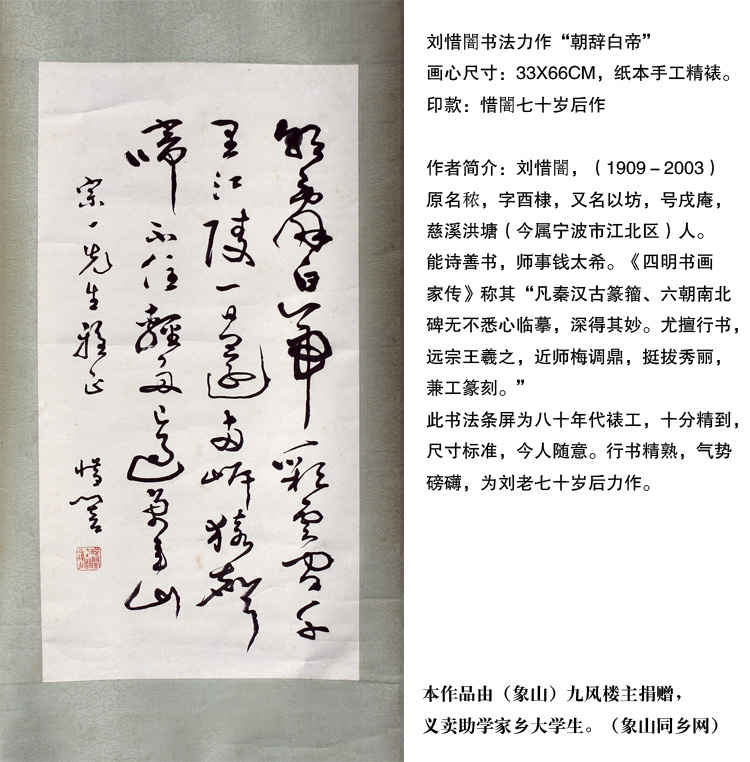 朝辭白帝彩雲間千
里江陵一日還兩岸猿聲
啼不住輕舟已過萬重山
宗一先生雅正
惜闇
刘惜闇书法力作“朝辞白帝”
画心尺寸：33X66CM，纸本手工精裱。
印款：惜闇七十岁后作
作者简介：刘惜闇，（1909－2003）
原名秾，字酉棣，又名以坊，号戌庵，
慈溪洪塘（今属宁波市江北区）人。
能诗善书，师事钱太希。《四明书画
家传》称其“凡秦汉古篆籀、六朝南北
碑无不悉心临摹，深得其妙。尤擅行书，
远宗王羲之，近师梅调鼎，挺拔秀丽，
兼工篆刻。”
此书法条屏为八十年代裱工，十分精到，
尺寸标准，令人随意。行书精熟，气势
磅礴，为刘老七十岁后力作。
本作品由（象山）九风楼主捐赠，
义卖助学家乡大学生。（象山同乡网）